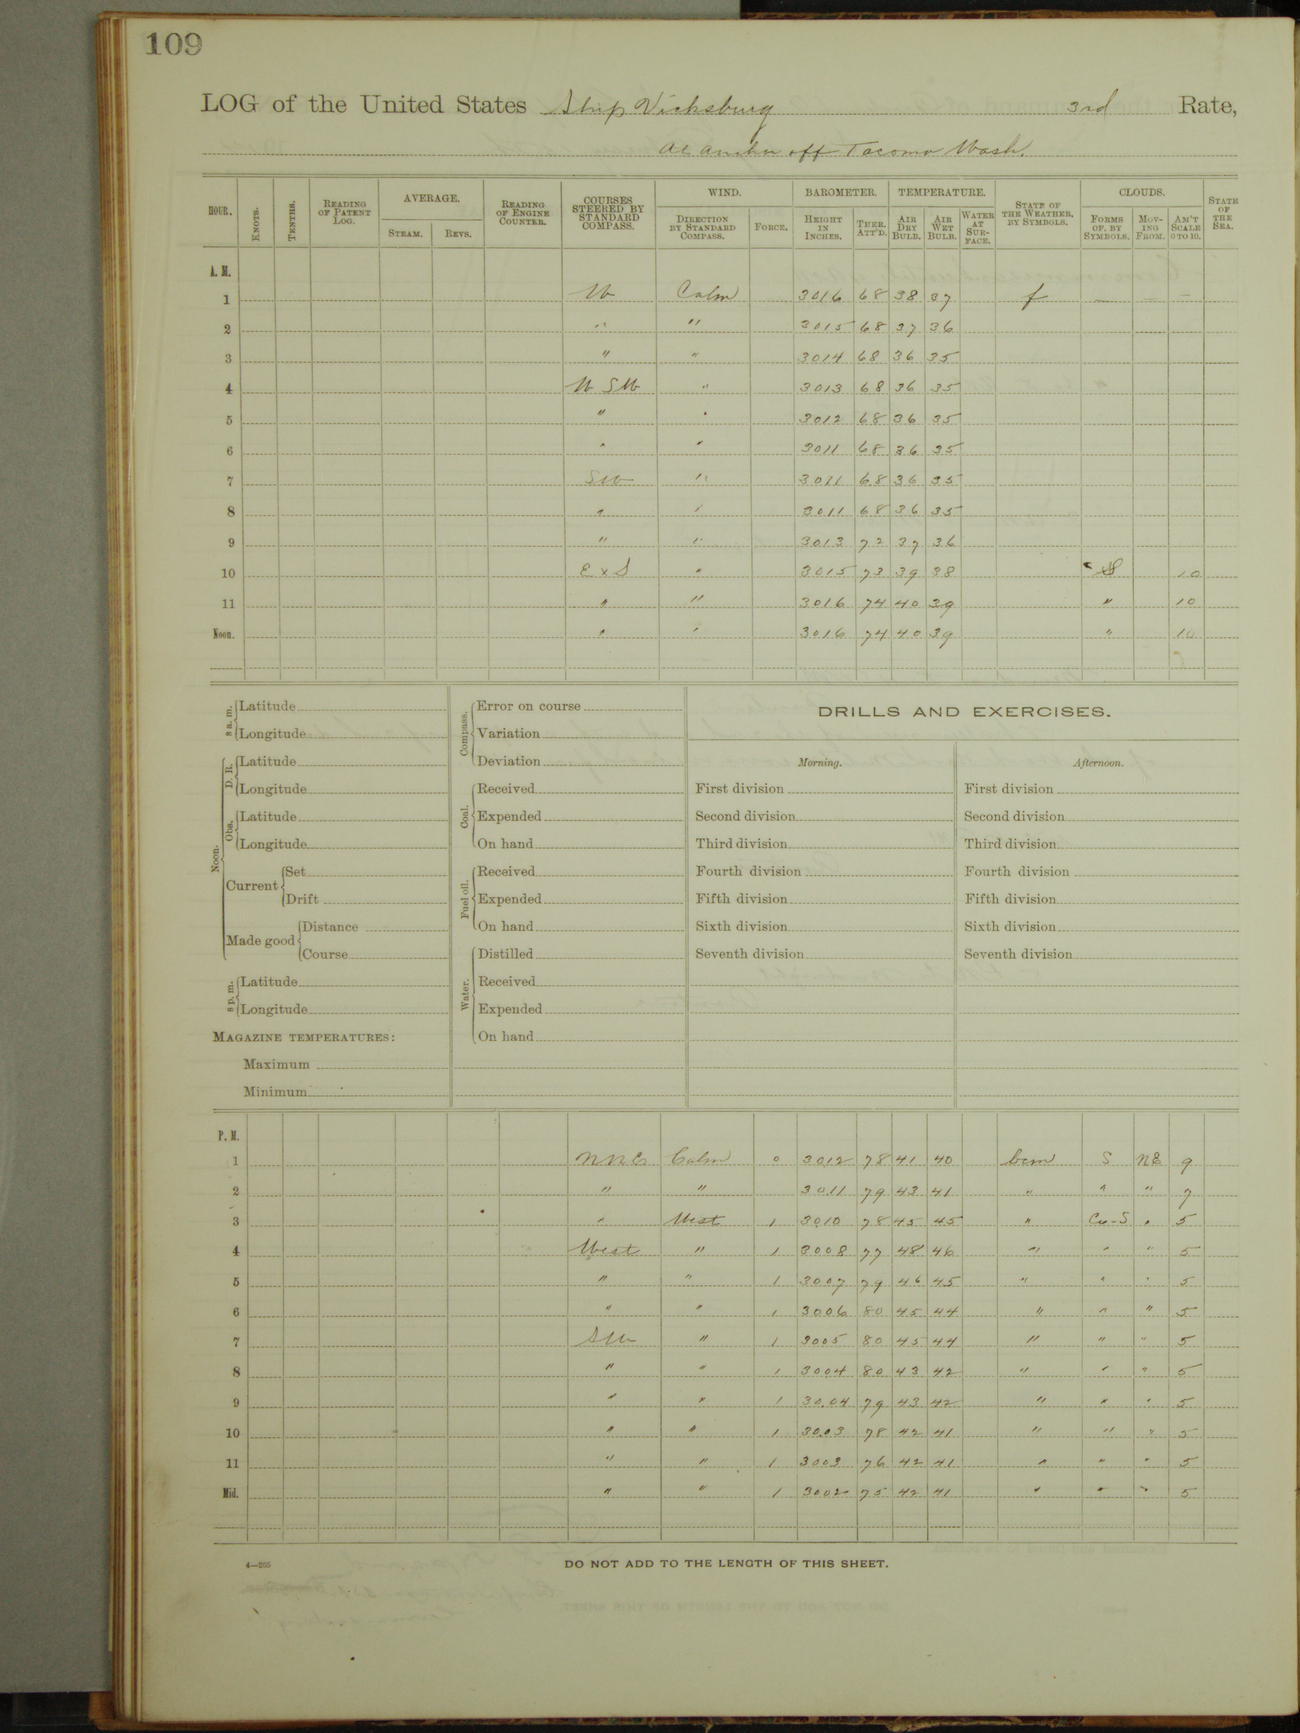 109
LOG of the United States Ship Vicksburg 3rd Rate,
At anchor off Tacoma Wash.
HOUR. KNOTS. TENTHS. READING OF PATENT LOG. AVERAGE. STEAM. REVS. READING OF ENGINE COUNTER. COURSES STEERED BY STANDARD COMPASS. WIND. DIRECTION BY STANDARD COMPASS. FORCE. BAROMETER. HEIGHT IN INCHES. THER. ATT'D. TEMPERATURE. AIR DRY BULB. AIR WET BULB. WATER AT SURFACE. STATE OF THE WEATHER, BY SYMBOLS. CLOUDS. FORMS OF, BY SYMBOLS. MOVING FROM. AM'T SCALE 0 TO 10. STATE OF THE SEA.
A. M.
1 W Calm 3016 68 38 37 f — — —
2 " " 3015 68 37 36
3 " " 3014 68 36 35
4 W SW " 3013 68 36 35
5 " " 3012 68 36 35
6 " " 3011 68 36 35
7 SW " 3011 68 36 35
8 " " 3011 68 36 35
9 " " 3013 72 37 36
10 E x S " 3015 73 39 38 S 10
11 " " 3016 74 40 39 " 10
Noon. " " 3016 74 40 39 " 10
8 a. m. Latitude
Longitude
Noon. D. R. Latitude
Longitude
Obs. Latitude
Longitude
Current Set
Drift
Made good Distance
Course
8 p. m. Latitude
Longitude
MAGAZINE TEMPERATURES:
Maximum
Minimum
Compass. Error on course
Variation
Deviation
Coal. Received
Expended
On hand
Fuel oil. Received
Expended
On hand
Water. Distilled
Received
Expended
On hand
DRILLS AND EXERCISES.
Morning. Afternoon.
First division First division
Second division Second division
Third division Third division
Fourth division Fourth division
Fifth division Fifth division
Sixth division Sixth division
Seventh division Seventh division
P. M.
1 NNE Calm 0 3012 78 41 40 bcm S NE 9
2 " " 3011 79 43 41 " " " 7
3 " West 1 3010 78 45 45 " Cu-S " 5
4 West " 1 3008 77 48 46 " " " 5
5 " " 1 3007 79 46 45 " " " 5
6 " " 1 3006 80 45 44 " " " 5
7 SW " 1 3005 80 45 44 " " " 5
8 " " 1 3004 80 43 42 " " " 5
9 " " 1 30.04 79 43 42 " " " 5
10 " " 1 30.03 78 42 41 " " " 5
11 " " 1 3003 76 42 41 " " " 5
Mid. " " 1 3002 75 42 41 " " " 5
4—255 DO NOT ADD TO THE LENGTH OF THIS SHEET.